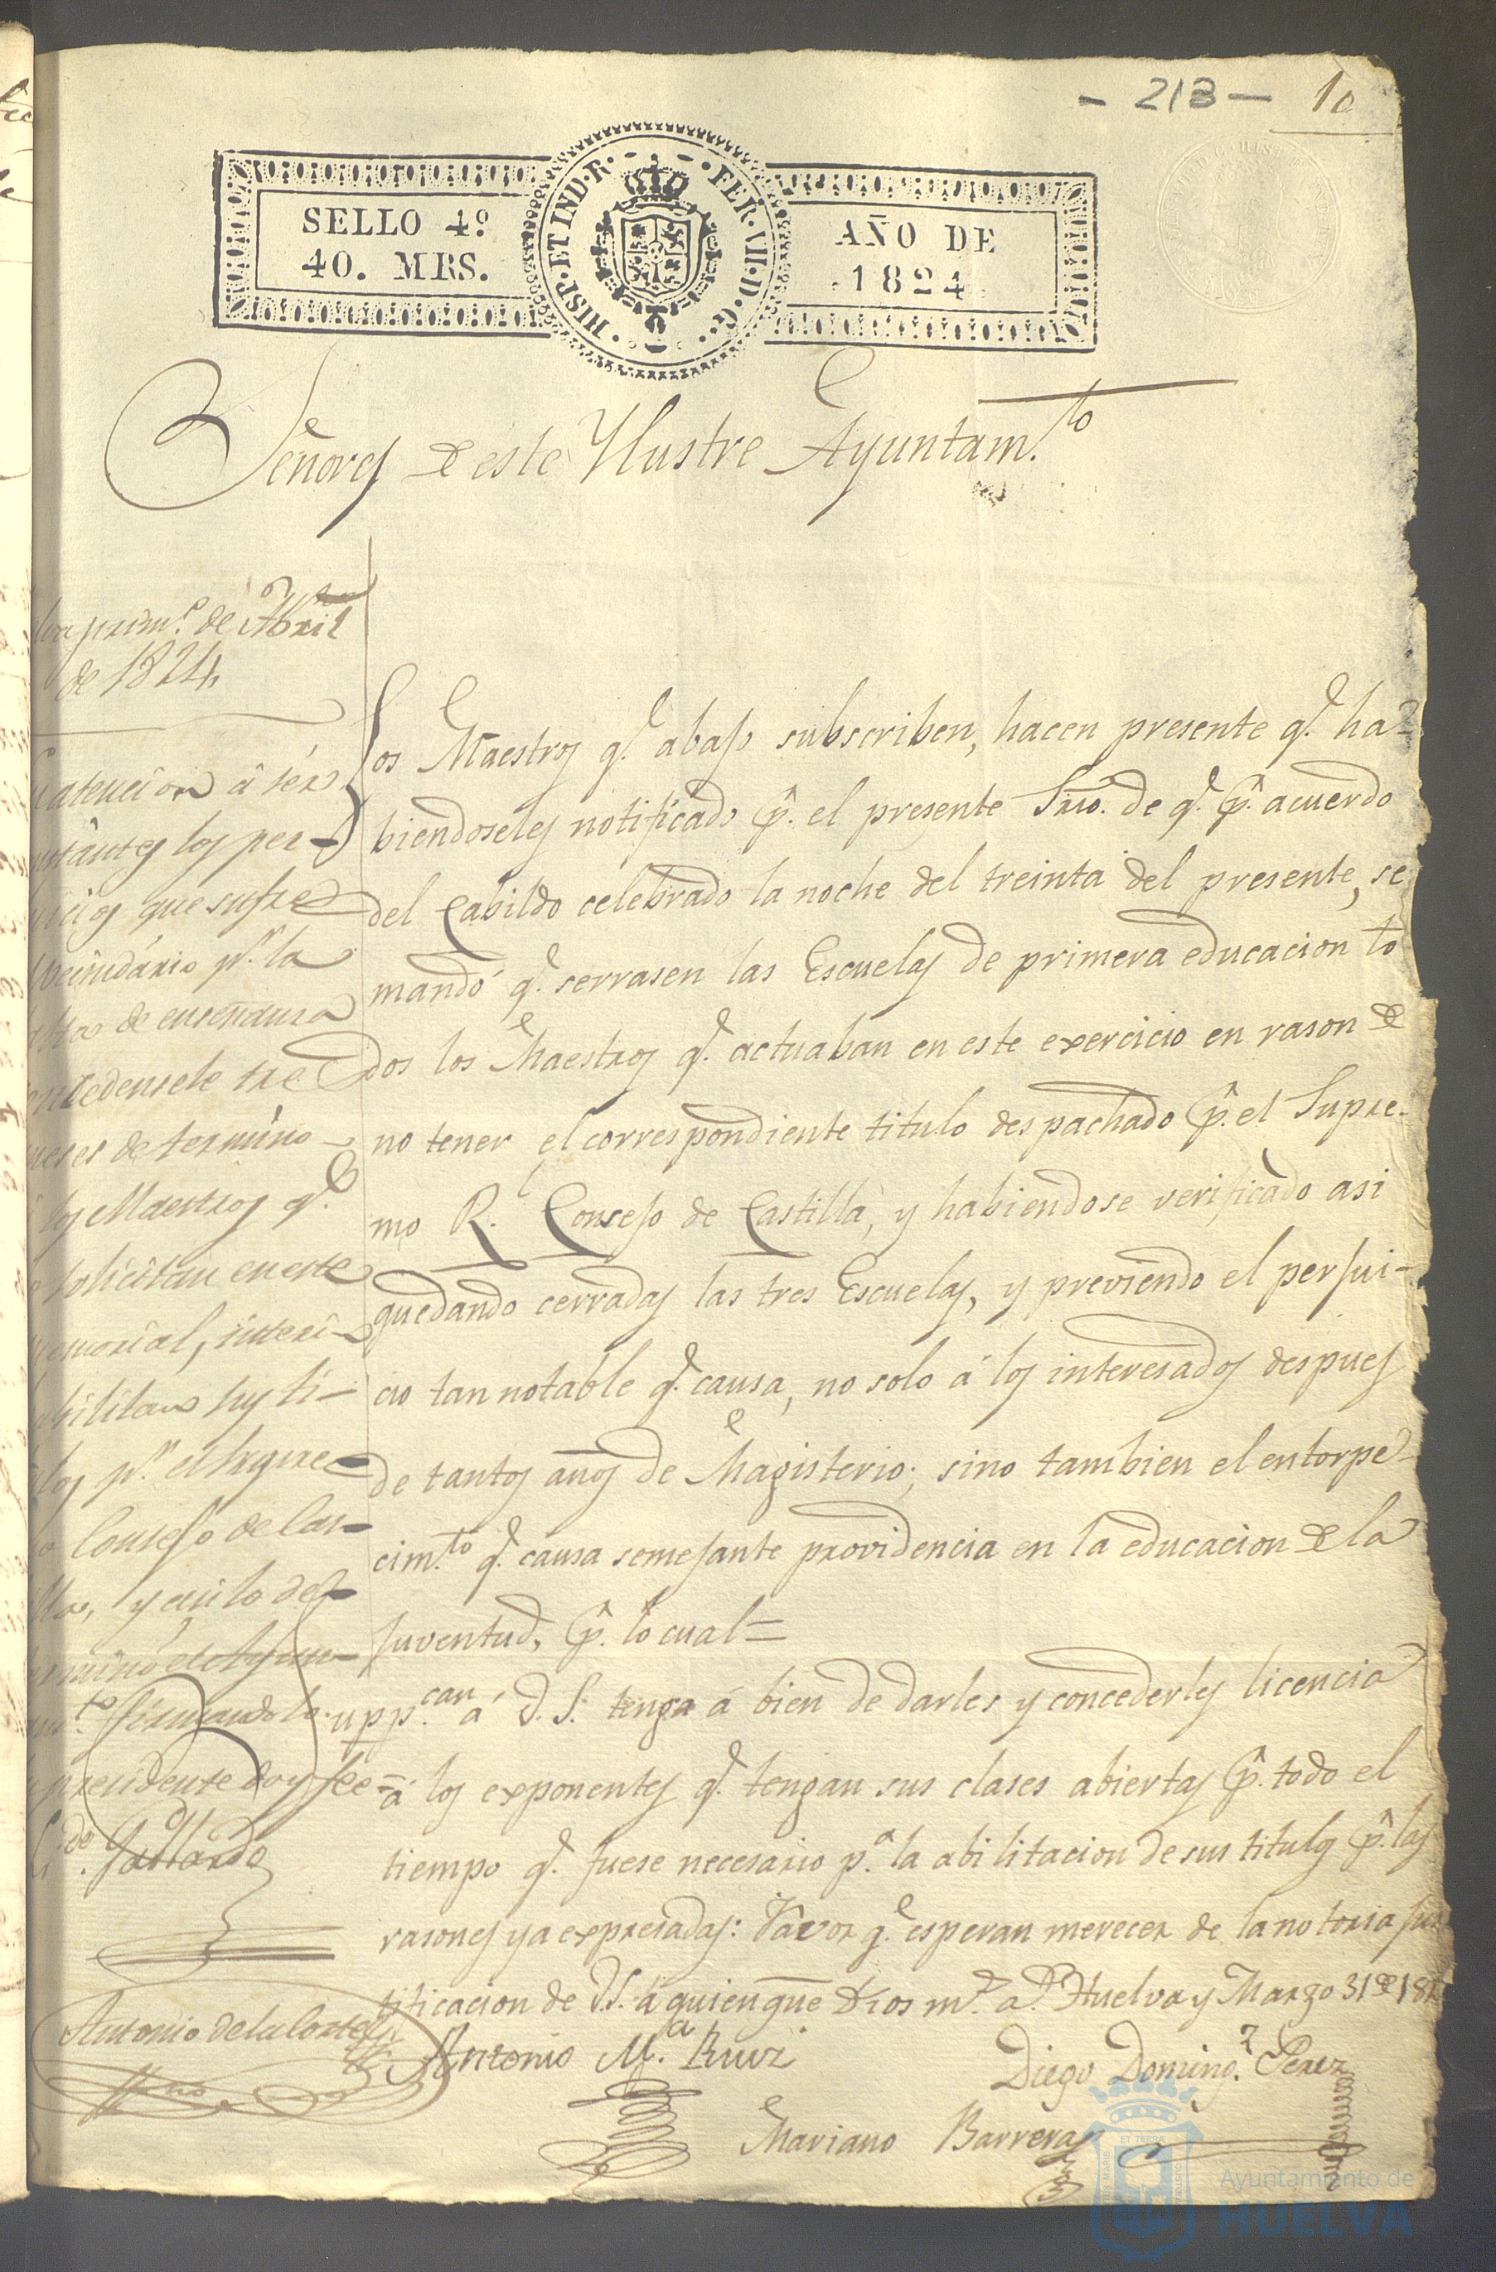 - 213 - 10
SELLO 4º
40. MRS.
HISP. ET IND. R. FER. VII. D. G.
AÑO DE
1824
Señores de este Ylustre Ayuntam.to
prim.º de Abril
de 1824
atencion á ser
los per-
que sufre
vecindário p.r la
de enseñanza
concedensele tre
meses de término
los Maestros q.e
solicitan en este
memorial, interi-
habilitan sus ti-
tulos p.r el Supre-
Consejo de Cas-
lla, y asi lo de-
terminó el Ayun-
firmandolo
presidente doy fee =
Gallardo
Antonio de la Corte
Los Maestros q.e abajo subscriben, hacen presente q.e ha-
biendoseles notificado p.r el presente Srio. de q.e p.r acuerdo
del Cabildo celebrado la noche del treinta del presente, se
mandó q.e serrasen las Escuelas de primera educacion to
dos los Maestros q.e actuaban en este exercicio en rason de
no tener el correspondiente titulo despachado p.r el Supre-
mo R.l Consejo de Castilla, y habiendose verificado asi
quedando cerradas las tres Escuelas, y previendo el perjui-
cio tan notable q.e causa, no solo á los interesados despues
de tantos años de Magisterio; sino tambien el entorpe-
cim.to q.e causa semejante providencia en la educacion de la
juventud, p.r lo cual =
upp.can á V.S. tenga á bien de darles y concederles licencia
á los exponentes q.e tengan sus clases abiertas p.r todo el
tiempo q.e fuese necesario p.a la abilitacion de sus titulos p.r las
rasones ya expresadas: Favor q.e esperan merecer de la notoria jus
tificacion de V.S. á quien gue Dios m.s a.s Huelva y Marzo 31 de 182
Antonio M.a Ruiz
Diego Doming.z Perez
Mariano Barrera
Ayuntamiento de
HUELVA